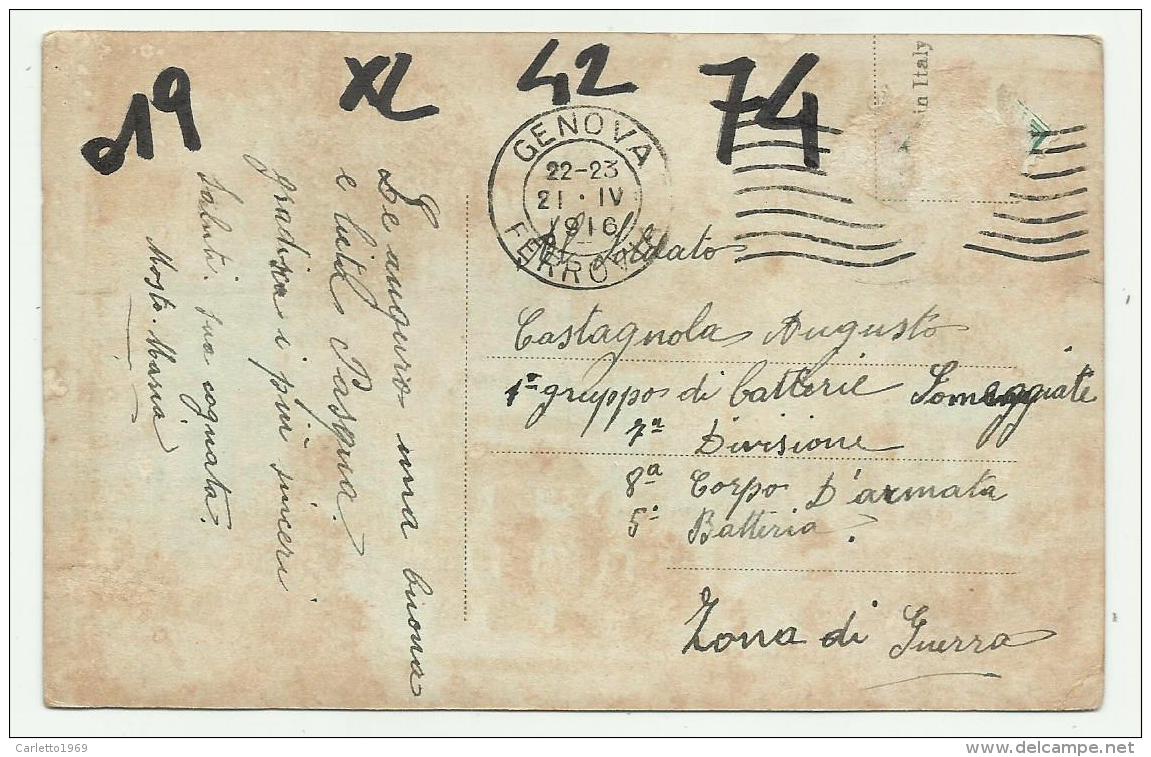 019 XL 42 74
in Italy
GENOVA
22-23
21 · IV
1916
FERROVIA
Le auguro una buona
e lieta Pasqua.
gradisca i più sinceri
Saluti. sua cognata.
Mosto. Maria
Al Soldato
Castagnola Augusto
1° gruppo di batterie Someggiate
7a Divisione
8a Corpo D'armata
5a Batteria
Zona di Guerra
Carletto1969
delcampe.net